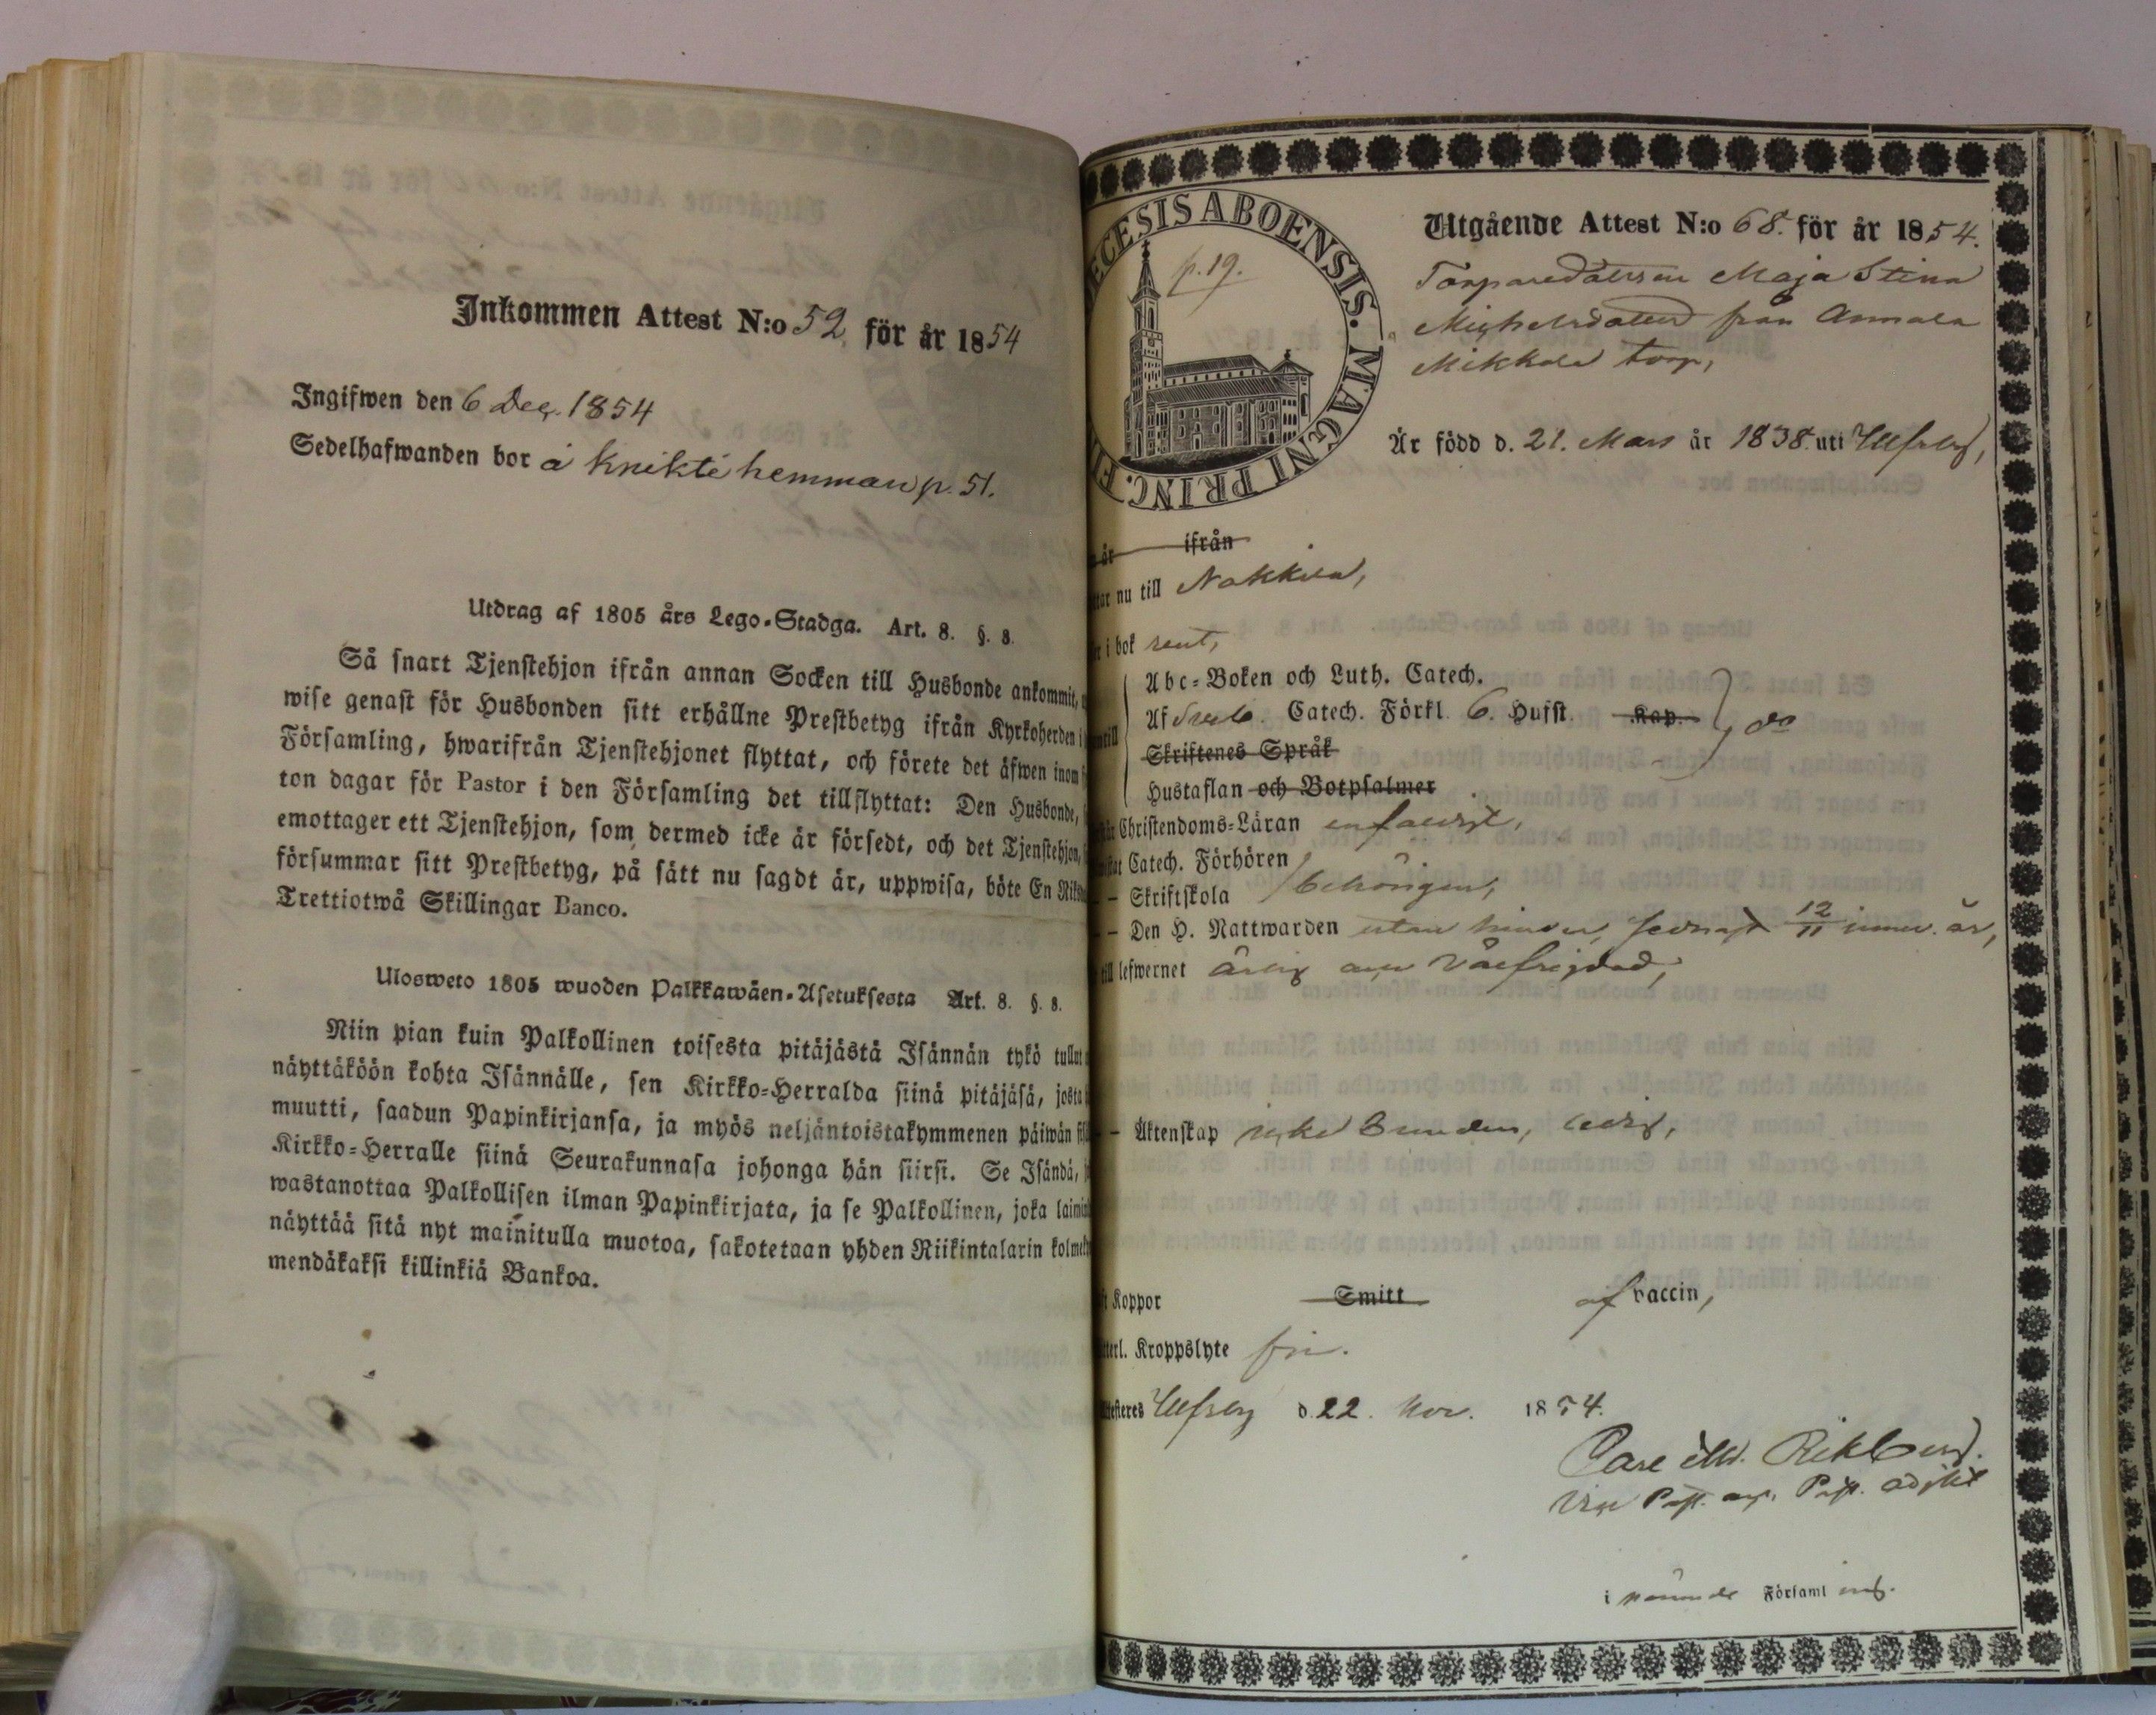 Inkommen Attest N:o 52 för år 1854
Ingifwen den 6 Dec. 1854
Sedelhafwanden bor å Knikti hemman p. 51.
Utdrag af 1805 års Lego-Stadga. Art. 8. §. 8.
Så snart Tjenstehjon ifrån annan Socken till Husbonde ankommit,
wise genast för Husbonden sitt erhållne Prestbetyg ifrån Kyrkoherden i
Församling, hwarifrån Tjenstehjonet flyttat, och förete det äfwen inom
ton dagar för Pastor i den Församling det tillflyttat: Den Husbonde,
emottager ett Tjenstehjon, som dermed icke är försedt, och det Tjenstehjon,
försummar sitt Prestbetyg, på sätt nu sagdt är, uppwisa, böte En
Trettiotwå Skillingar Banco.
Ulosweto 1805 wuoden Palkkawäen-Asetuksesta Art. 8. §. 8.
Niin pian kuin Palkollinen toisesta pitäjästä Isännän tykö tullut
näyttäköön kohta Isännälle, sen Kirkko-Herralda siinä pitäjäsä, josta
muutti, saadun Papinkirjansa, ja myös neljäntoistakymmenen päiwän
Kirkko-Herralle siinä Seurakunnasa johonga hän siirsi. Se Isändä,
wastanottaa Palkollisen ilman Papinkirjata, ja se Palkollinen, joka
näyttää sitä nyt mainitulla muotoa, sakotetaan yhden Riikintalarin
mendäkaksi killinkiä Bankoa.
ECESIS ABOENSIS. MAGNI PRINC. FI
p. 19.
Utgående Attest N:o 68. för år 1854.
Torparedottren Maja Stina
Michelsdotter från Annala
Mikkola torp,
Är född d. 21. Mars år 1838. uti Ulfsby,
år ifrån
nu till Nakkila,
i bok rent,
Abc-Boken och Luth. Catech.
Af Sveb. Catech. Förkl. 6. Hufst. Kap. do
Skriftenes Språk
Hustaflan och Botpsalmer
Christendoms-Läran enfaldigt,
Catech. Förhören
- - Skriftskola behörigen,
- - Den H. Nattwarden utan hinder, sednast 12/11 innev. år,
till lefwernet ärlig och välfrejdad,
- - Äktenskap icke bunden, ledig,
Koppor Smitt af vaccin,
Kroppslyte fri.
Ulfsby d. 22. Nov. 1854.
Carl M. Rikberg.
Vice Past. Past. adjkt
i nämnde Församl